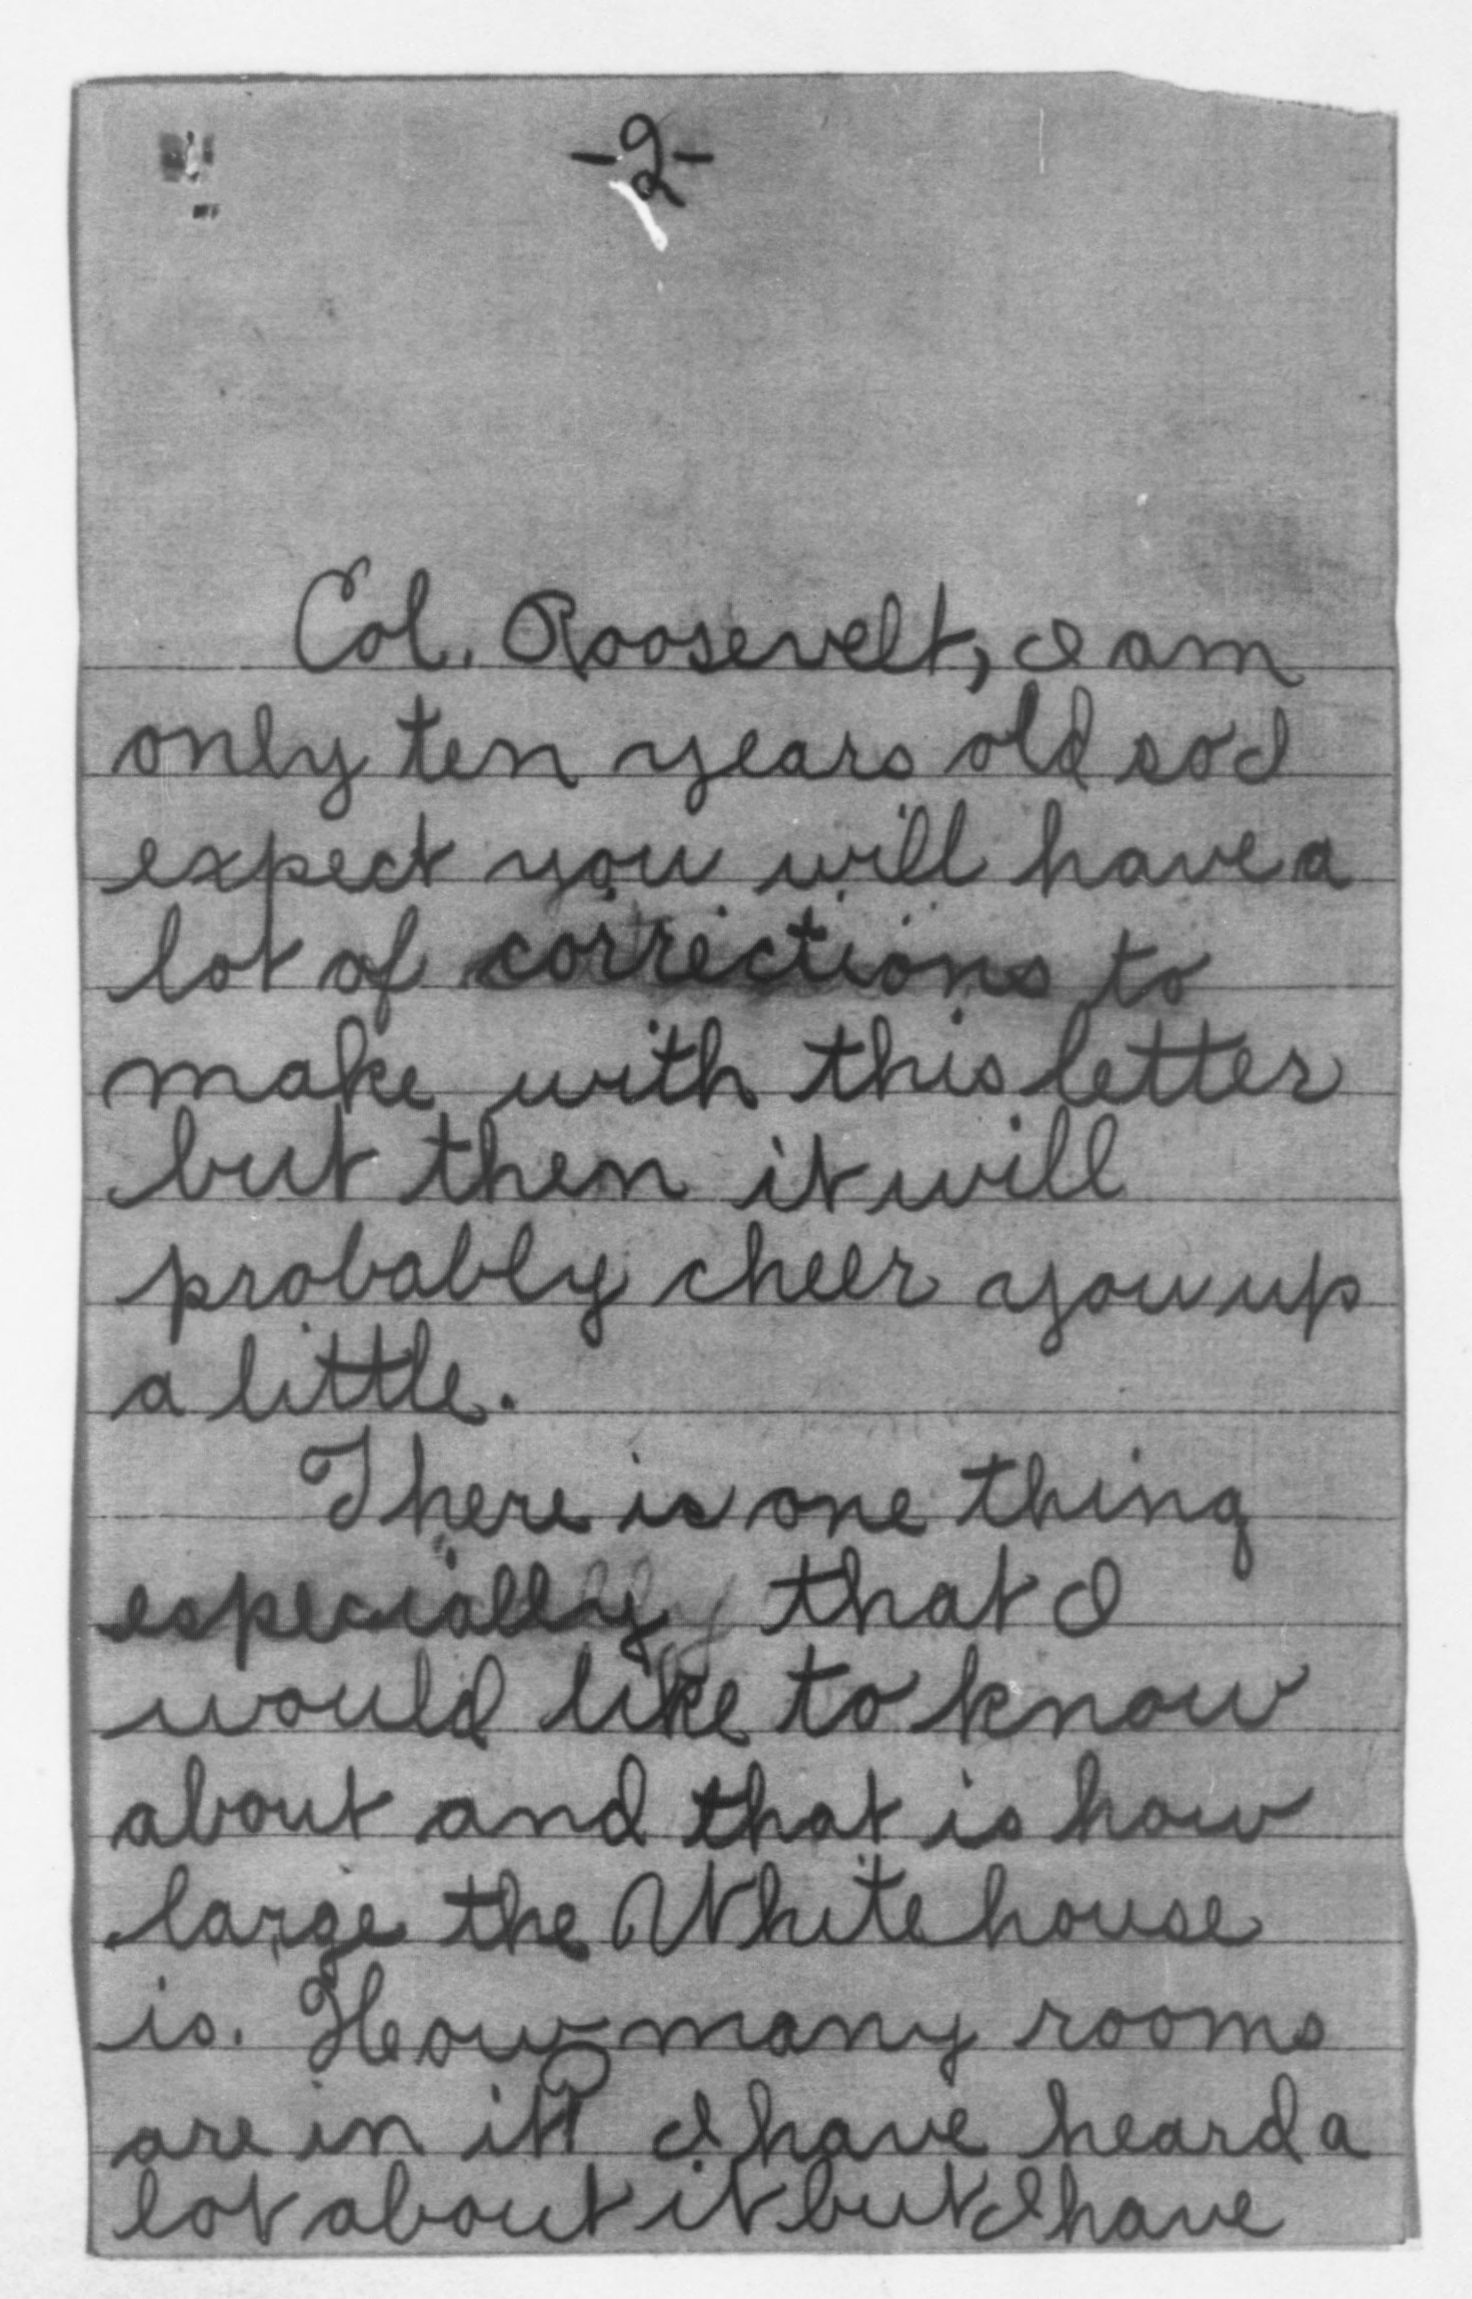 -2-
Col. Roosevelt, I am
only ten years old so I
expect you will have a
lot of corrections to
make with this letter
but then it will
probably cheer you up
a little.
There is one thing
especially that I
would like to know
about and that is how
large the White house
is. How many rooms
are in it? I have heard a
lot about it but I have